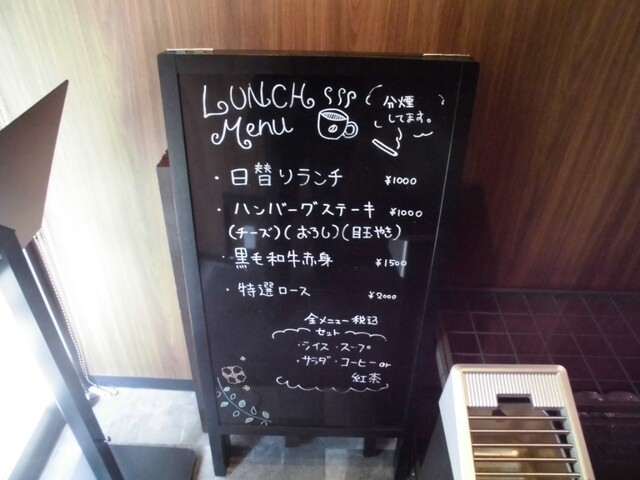 LUNCH
Menu
分煙
してます。
・日替りランチ ¥1000
・ハンバーグステーキ ¥1000
(チーズ)(おろし)(目玉やき)
・黒毛和牛赤身 ¥1500
・特選ロース ¥2000
全メニュー税込
セット
・ライス・スープ
・サラダ・コーヒーor
紅茶